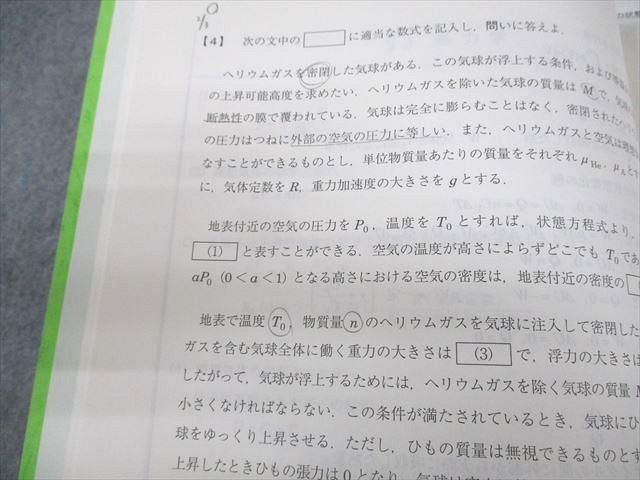 0
2/3
の状態
【4】 次の文中の に適当な数式を記入し，問いに答えよ．
ヘリウムガスを密閉した気球がある．この気球が浮上する条件，および
の上昇可能高度を求めたい．ヘリウムガスを除いた気球の質量は M で，
断熱性の膜で覆われている．気球は完全に膨らむことはなく，密閉された
の圧力はつねに外部の空気の圧力に等しい．また，ヘリウムガスと空気は理想
なすことができるものとし，単位物質量あたりの質量をそれぞれ μHe，μA とす
に，気体定数を R，重力加速度の大きさを g とする．
地表付近の空気の圧力を P0，温度を T0 とすれば，状態方程式より，
(1) と表すことができる．空気の温度が高さによらずどこでも T0 であ
aP0 (0<a<1) となる高さにおける空気の密度は，地表付近の密度の
地表で温度 T0，物質量 n のヘリウムガスを気球に注入して密閉した
ガスを含む気球全体に働く重力の大きさは (3) で，浮力の大きさは
したがって，気球が浮上するためには，ヘリウムガスを除く気球の質量 M
小さくなければならない．この条件が満たされているとき，気球にひ
球をゆっくり上昇させる．ただし，ひもの質量は無視できるものとす
上昇したときひもの張力は 0 となり，